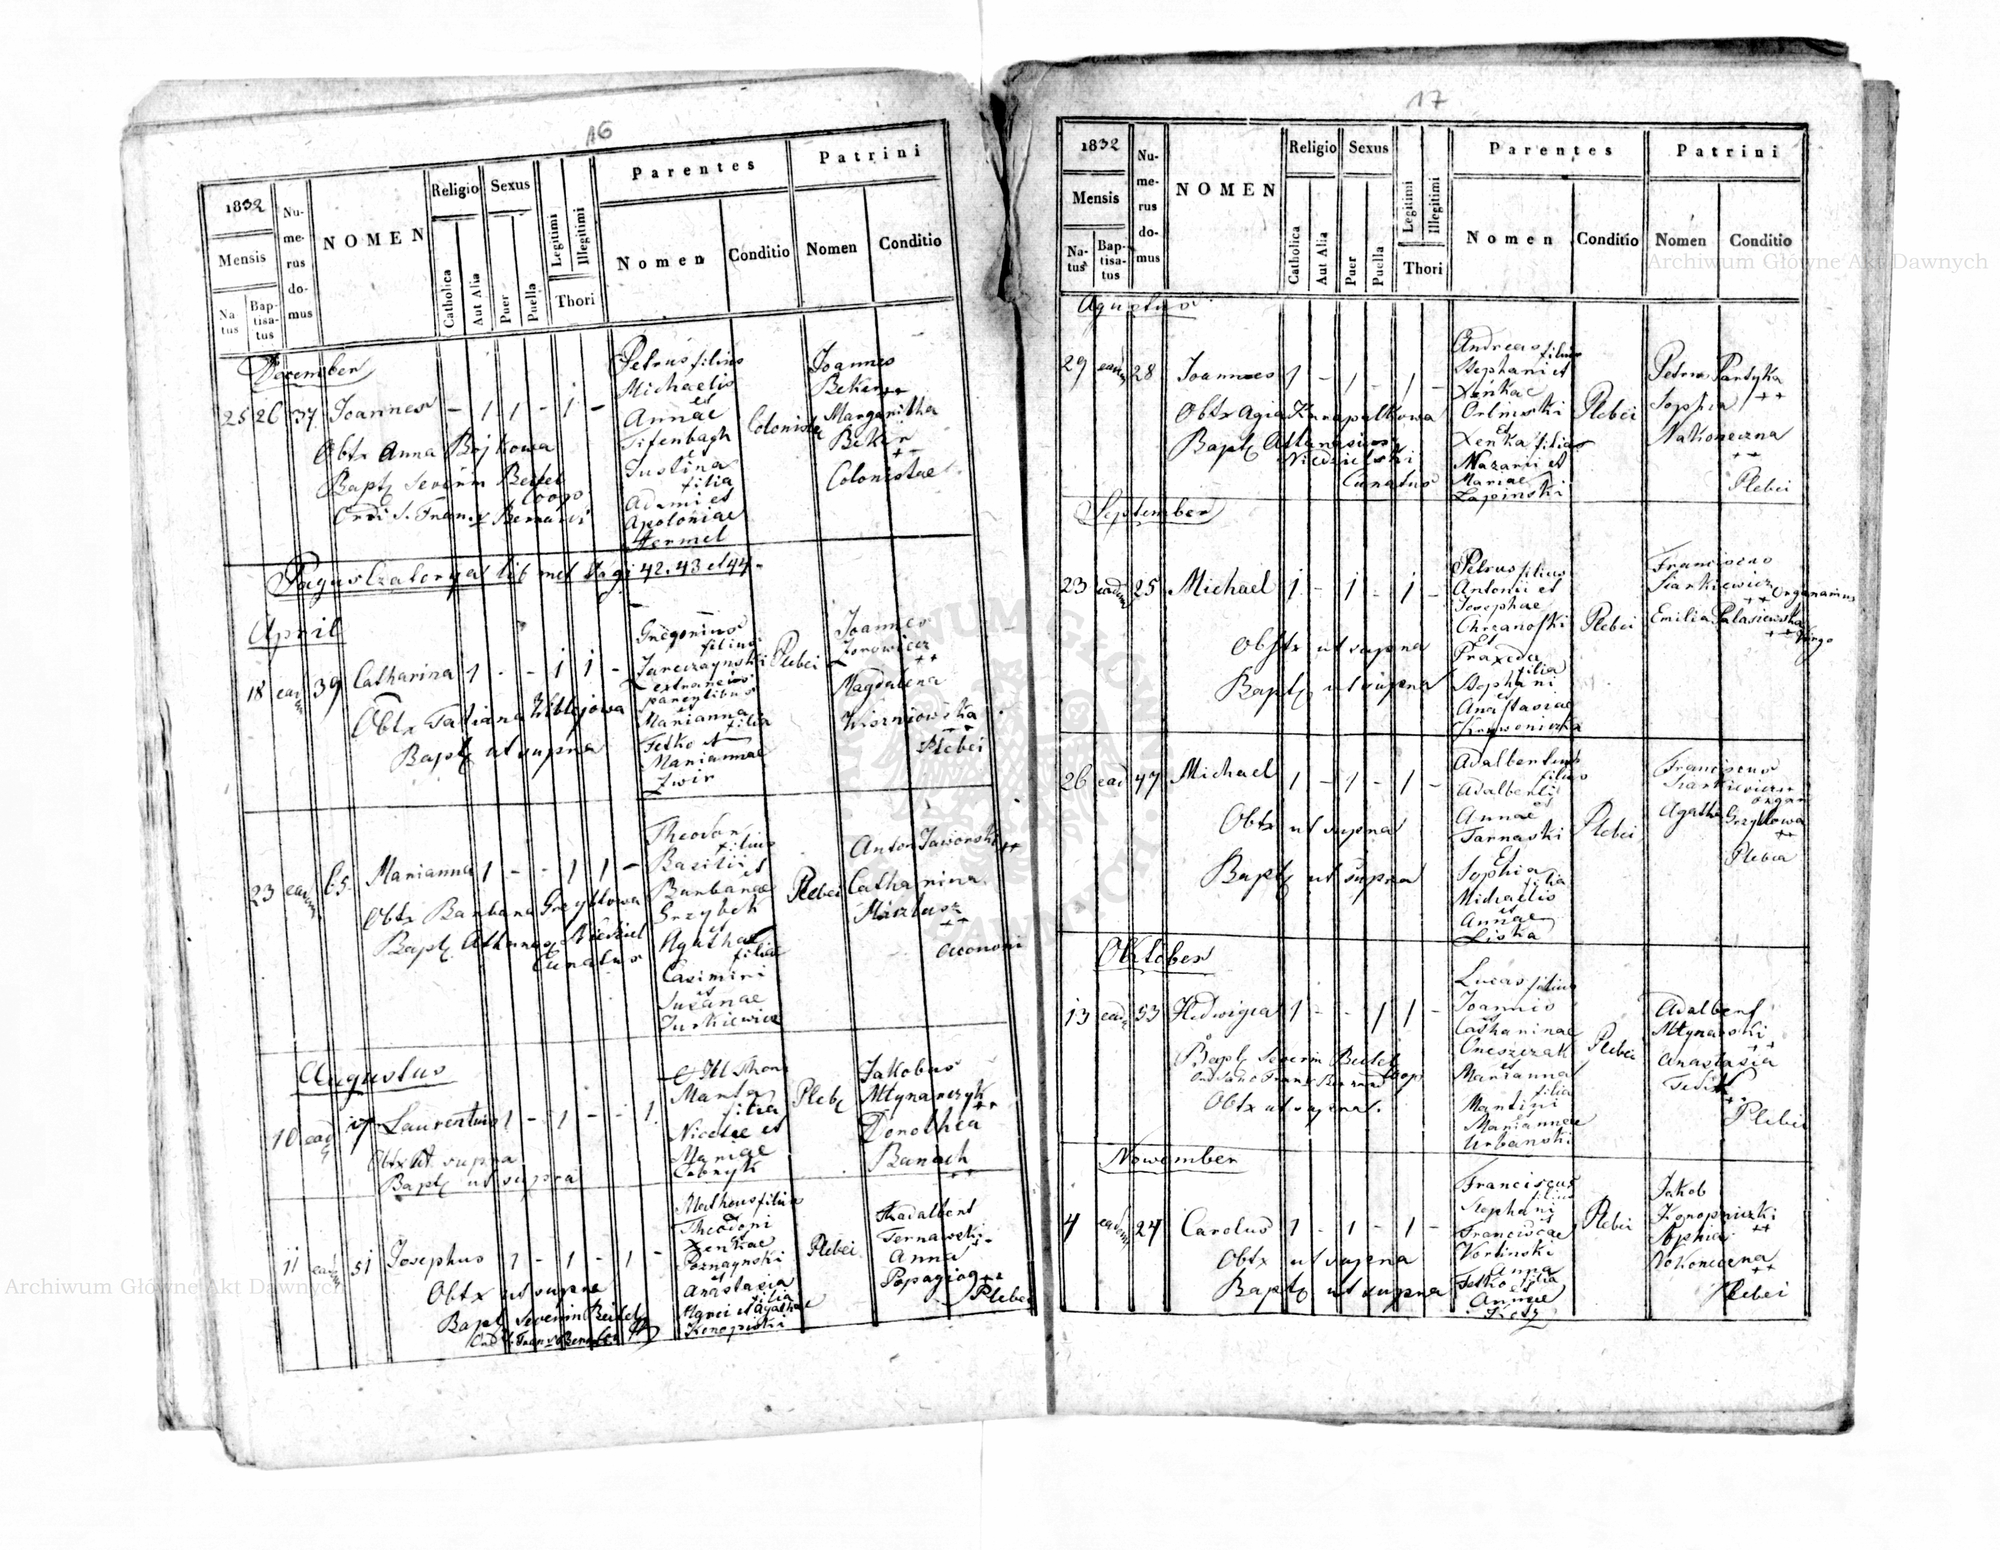 16
1832
Mensis
Na
tus
Bap-
tisa-
tus
Nu-
me-
rus
do-
mus
NOMEN
Religio
Catholica
Aut Alia
Sexus
Puer
Puella
Legitimi
Illegitimi
Thori
Parentes
Nomen
Conditio
Patrini
Nomen
Conditio
December
25 26 37 Joannes - 1 1 - 1 -
Obtx Anna Bojkowa
Bapt Severin Beitel
Coop
Ordi S. Franx Bernardi
Petrus filius
Michaelis
et
Annae
Tifenbagh
et
Justina
filia
Adami et
Apoloniae
Hermel
Colonistae
Joannes
Beker ++
Margaritha
Beker
++
Colonistae
Pagus Czaterya lib met pag 42. 43 et 44
April
18 ead 39 Catharina 1 - - 1 1 -
Obtx Tatiana
Bapt ut supra
Gregorius
filius
Jareczaynski
extraneis
parentibus
et
Marianna
filia
Fetko et
Mariannae
Zwir
Plebei
Joannes
Jorowicz
++
Magdalena
Wiszniowska
++
Plebei
23 eadem 65 Marianna 1 - - 1 1 -
Obtx Barbara Grzybkowa
Bapt Athanas Niedziel
Curatus
Theodor
filius
Basilii et
Barbarae
Grzybek
et
Agatha
filia
Casimiri
et
Suzanae
Jurkiewicz
Plebei
Anton Jaworski
++
Catharina
++
Oeconomi
Augustus
10 ead 17 Laurentius 1 - 1 - - 1
Obtx ut supra
Bapt ut supra
Ill Thori
Marta
filia
Nicolae et
Mariae
Plebei
Jakobus
Młynarczyk
++
Dorothea
Banach
++
11 eadem 51 Josephus 1 - 1 - 1 -
Obtx ut supra
Bapt Severin Beitel
Ord S. Franx Bernar
Matheus filius
Theodori
et
Xenkae
Poznaynski
et
Anastasia
filia
et Agathae
Konopinski
Plebei
Adalbert
Tarnawski
++
Anna
++
Plebei
17
1832
Mensis
Na-
tus
Bap-
tisa-
tus
Nu-
me-
rus
do-
mus
NOMEN
Religio
Catholica
Aut Alia
Sexus
Puer
Puella
Legitimi
Illegitimi
Thori
Parentes
Nomen
Conditio
Patrini
Nomen
Conditio
Agustus
29 eadem 28 Joannes 1 - 1 - 1 -
Obtx Agia Karapatkowa
Bapt Athanasius
Niedzielski
Curatus
Andreas filius
Stephani et
Xenkae
Orlinski
et
Xenka filia
Nazarii et
Mariae
Lapinski
Plebei
Petrus Pardyka
++
Sophia
Nakoneczna
++
Plebei
September
23 eadem 25 Michael 1 - 1 - 1 -
Obtx ut supra
Bapt ut supra
Petrus filius
Antonii et
Josephae
Chrzanoski
et
Praxeda
filia
Stephani
et
Anastasiae
Plebei
Franciscus
Siarkiewicz
++ Organarius
Emilia Palasiewska
++ Virgo
26 ead 47 Michael 1 - 1 - 1 -
Obtx ut supra
Bapt ut supra
Adalbertus
filius
Adalberti
et
Annae
Tarnaski
et
Sophia
filia
Michaelis
et
Annae
Liska
Plebei
Franciscus
Siarkiewicz ++
Organ
Agatha Grzybkowa
++
Plebei
Oktober
13 ead 53 Hedwigia 1 - - 1 1 -
Bapt Severin Beitel
Ord Sanc Franx Bernar Coop
Obtx ut supra.
Lucas filius
Joannis
et
Catharinae
Oneszczak
et
Marianna
filia
Martini
et
Mariannae
Urbanski
Plebei
Adalbert
Młynarski
++
Anastasia
++
Plebei
Nowember
4 eadem 24 Carolus 1 - 1 - 1 -
Obtx ut supra
Bapt ut supra
Franciscus
filius
Stephani
et
Franciscae
Worlinski
Anna
Fetko filia
et
Annae
Plebei
Jakob
Konopniczki
++
Sophia
Nokoneczna
++
Plebei
Archiwum Główne Akt Dawnych
Archiwum Główne Akt Dawnych